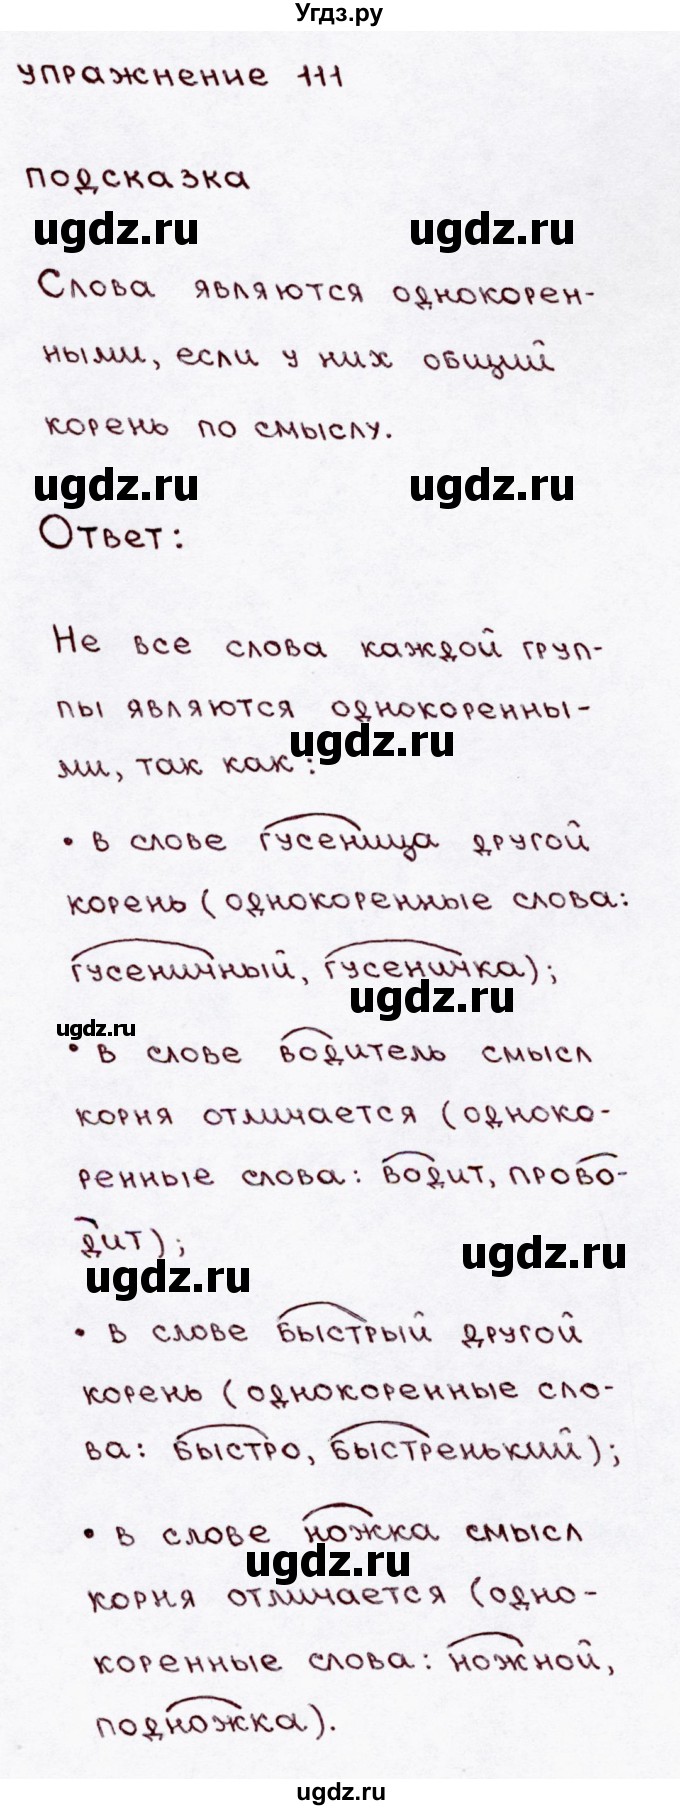 Угдз.ру
упражнение 111
подсказка
ugdz.ru ugdz.ru
Слова являются однокорен-
ными, если у них общий
корень по смыслу.
ugdz.ru ugdz.ru
Ответ:
Не все слова каждой груп-
пы являются однокоренны-
ugdz.ru
ми, так как:
• в слове гусеница другой
корень (однокоренные слова:
гусеничный, гусеничка);
ugdz.ru
ugdz.ru
• в слове водитель смысл
корня отличается (одноко-
ренные слова: водит, прово-
дит);
ugdz.ru
ugdz.ru
• в слове быстрый другой
корень (однокоренные сло-
ва: быстро, быстренький);
• в слове ножка смысл
ugdz.ru
корня отличается (одно-
коренные слова: ножной,
подножка).
ugdz.ru